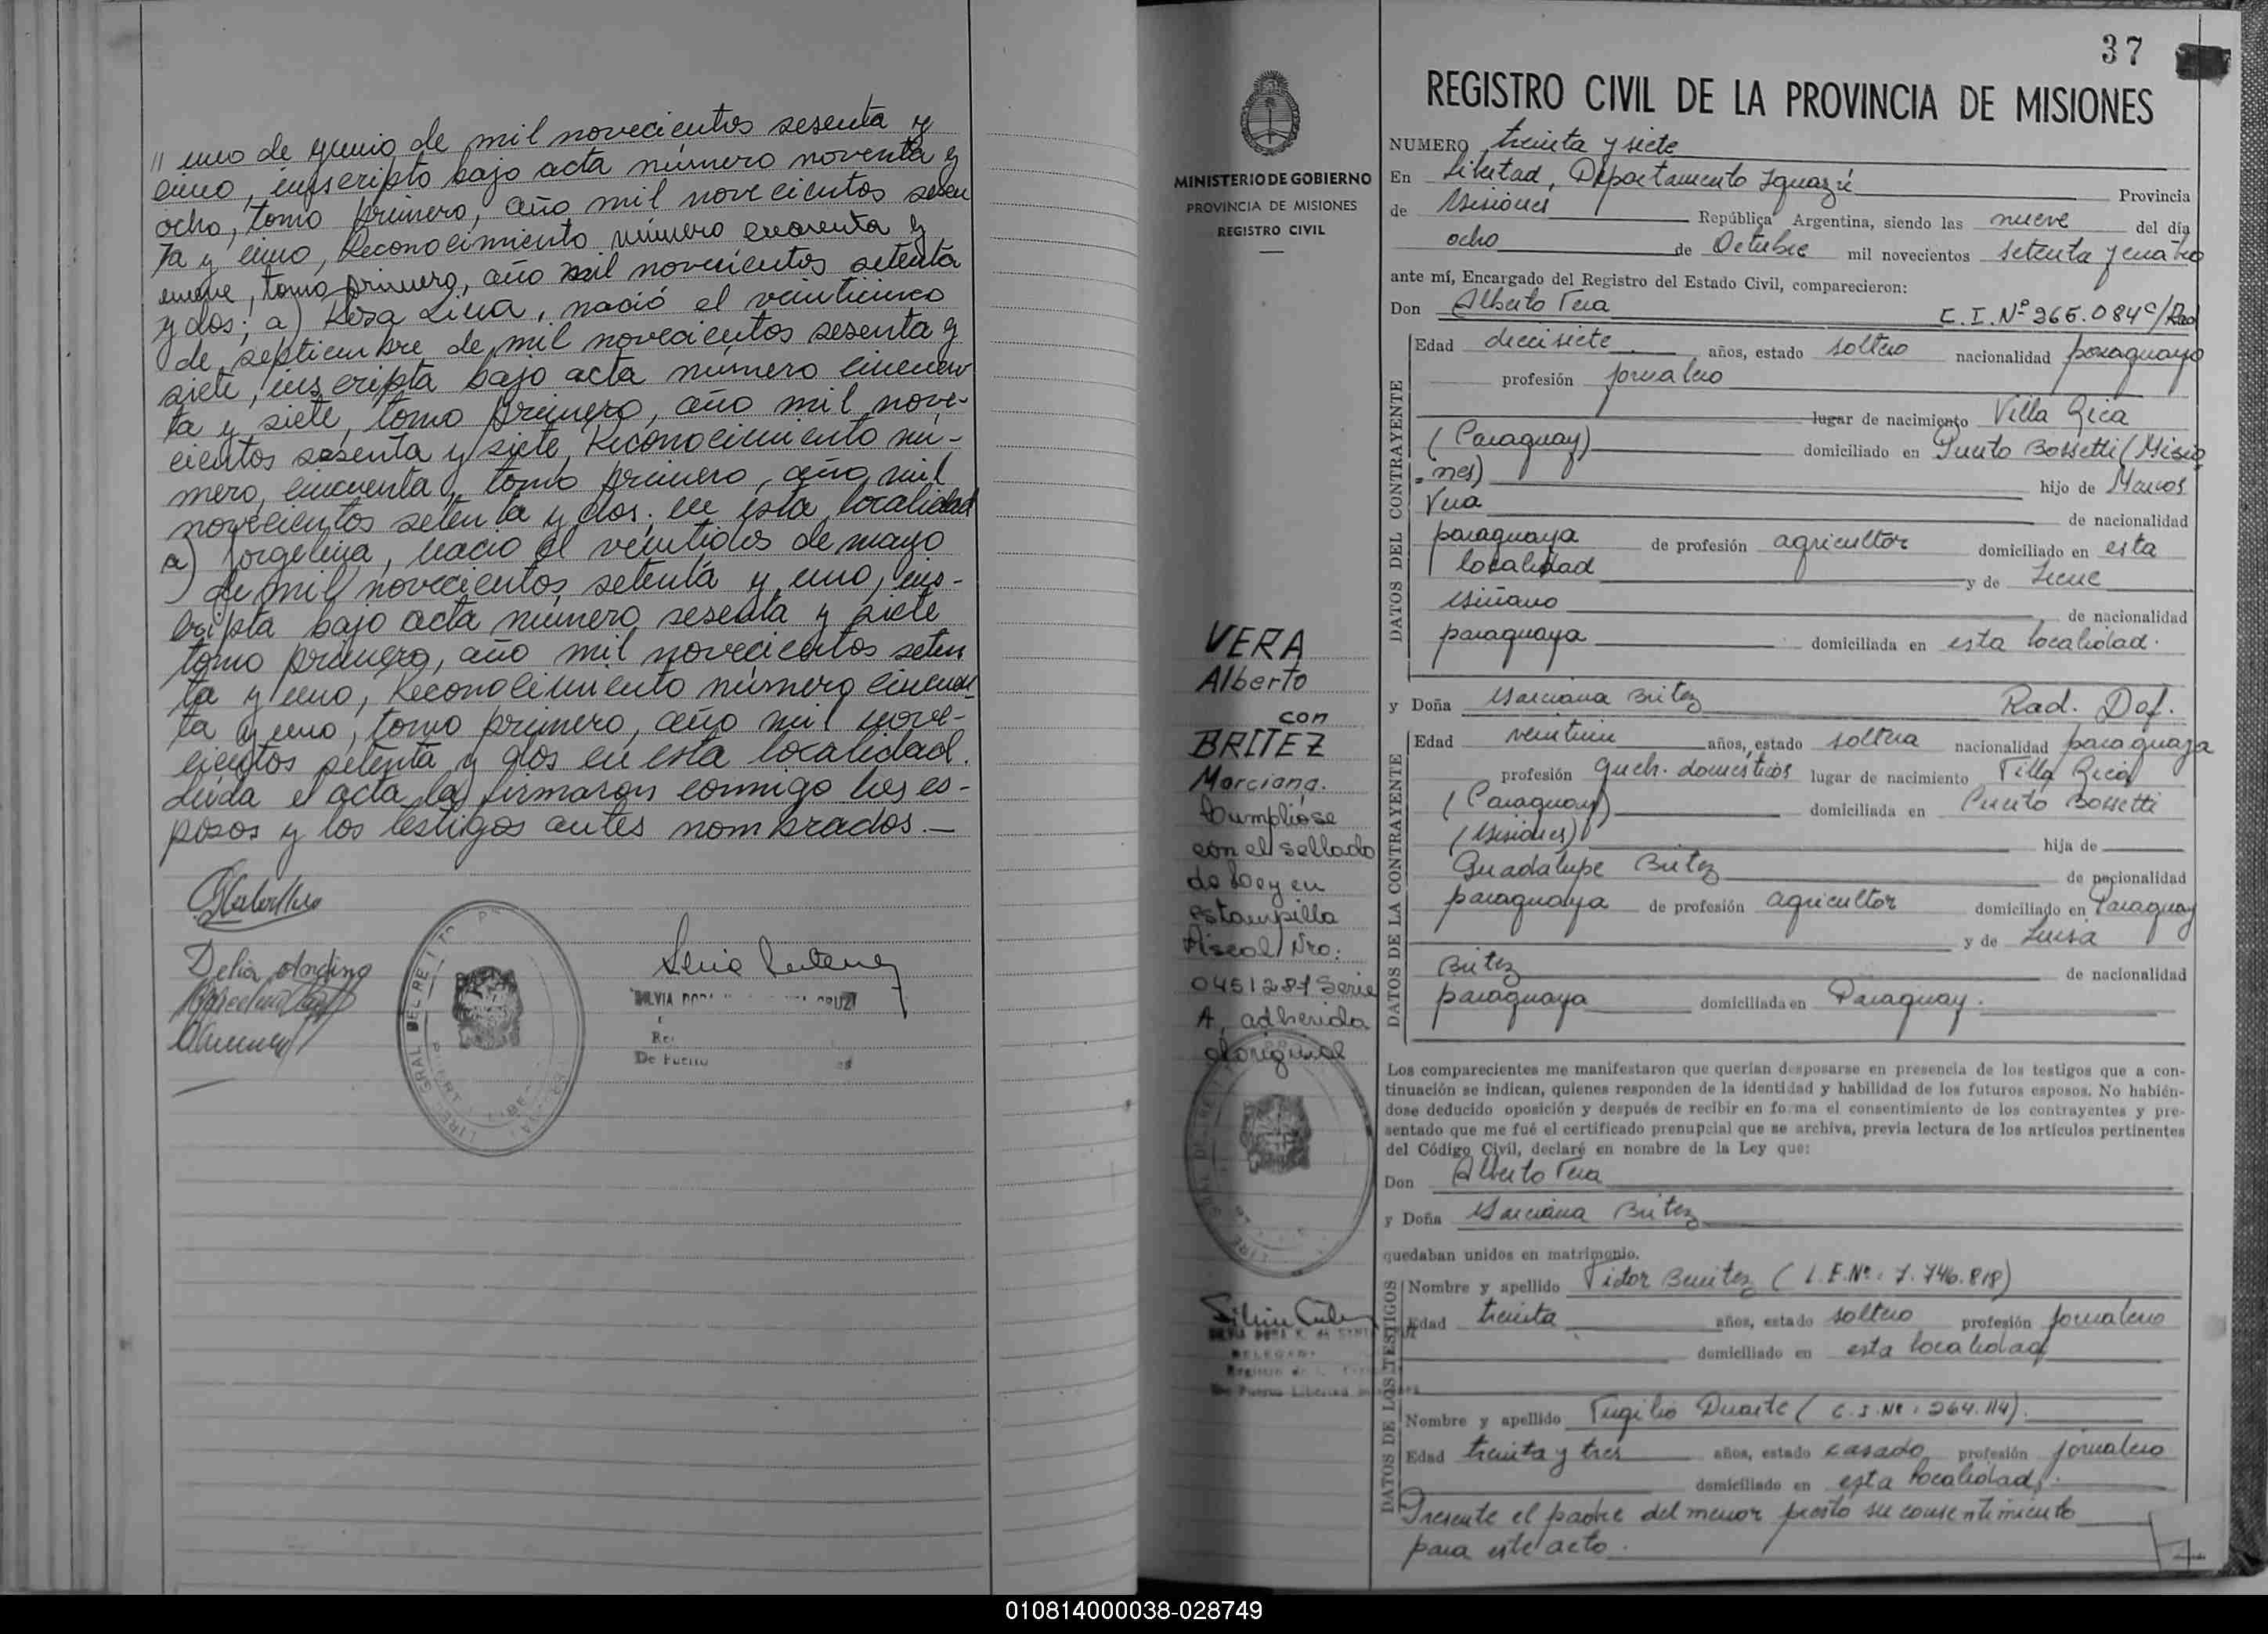 // uno de junio de mil novecientos sesenta y
cinco, inscripto bajo acta número noventa y
ocho, tomo primero, año mil novecientos sesen
ta y cinco, Reconocimiento número cuarenta y
nueve, tomo primero, año mil novecientos setenta
y dos; a) Rosa Lina, nació el veinticinco
de septiembre de mil novecientos sesenta y
siete, inscripta bajo acta número cincuen
ta y siete, tomo primero, año mil nove-
cientos sesenta y siete, Reconocimiento nú-
mero, cincuenta, tomo primero, año mil
novecientos setenta y dos; en esta localidad
a) Jorgelina, nació el veintidós de mayo
de mil novecientos setenta y uno, ins-
cripta bajo acta número sesenta y siete
tomo primero, año mil novecientos seten
ta y uno, Reconocimiento número cincuen-
ta y uno, tomo primero, año mil nove-
cientos setenta y dos en esta localidad.
Leída el acta la firmaron conmigo los es-
posos y los testigos antes nombrados.—
Delia
37
MINISTERIO DE GOBIERNO
PROVINCIA DE MISIONES
REGISTRO CIVIL
VERA
Alberto
con
BRITEZ
Marciana.
Cumplióse
con el sellado
de Ley en
estampilla
Fiscal Nro:
0451287 Serie
A, adherida
al original
REGISTRO CIVIL DE LA PROVINCIA DE MISIONES
NUMERO treinta y siete
En Libertad, Departamento Iguazú Provincia
de Misiones República Argentina, siendo las nueve del día
ocho de Octubre mil novecientos setenta y cuatro
ante mí, Encargado del Registro del Estado Civil, comparecieron:
Don Alberto Vera C.I.Nº 265.084 C/Rad
DATOS DEL CONTRAYENTE
Edad diecisiete años, estado soltero nacionalidad paraguayo
profesión jornalero
lugar de nacimiento Villa Rica
(Paraguay) domiciliado en Puerto Bossetti (Misio
nes) hijo de Marcos
Vera de nacionalidad
paraguaya de profesión agricultor domiciliado en esta
localidad y de Irene
Miñano de nacionalidad
paraguaya domiciliada en esta localidad.
y Doña Marciana Britez Rad. Def.
DATOS DE LA CONTRAYENTE
Edad veintiun años, estado soltera nacionalidad paraguaya
profesión Queh. domésticos lugar de nacimiento Villa Rica
(Paraguay) domiciliada en Puerto Bossetti
(Misiones) hija de
Guadalupe Britez de nacionalidad
paraguaya de profesión agricultor domiciliado en Paraguay
y de Luisa
Britez de nacionalidad
paraguaya domiciliada en Paraguay.
Los comparecientes me manifestaron que querían desposarse en presencia de los testigos que a con-
tinuación se indican, quienes responden de la identidad y habilidad de los futuros esposos. No habién-
dose deducido oposición y después de recibir en forma el consentimiento de los contrayentes y pre-
sentado que me fué el certificado prenupcial que se archiva, previa lectura de los artículos pertinentes
del Código Civil, declaré en nombre de la Ley que:
Don Alberto Vera
y Doña Marciana Britez
quedaban unidos en matrimonio.
DATOS DE LOS TESTIGOS
Nombre y apellido Vidor Benitez (L.E.Nº: 7.746.818)
Edad treinta años, estado soltero profesión jornalero
domiciliado en esta localidad
Nombre y apellido Virgilio Duarte (C.I.Nº: 264.114).
Edad treinta y tres años, estado casado profesión jornalero
domiciliado en esta localidad.
Presente el padre del menor prestó su consentimiento
para este acto.
010814000038-028749